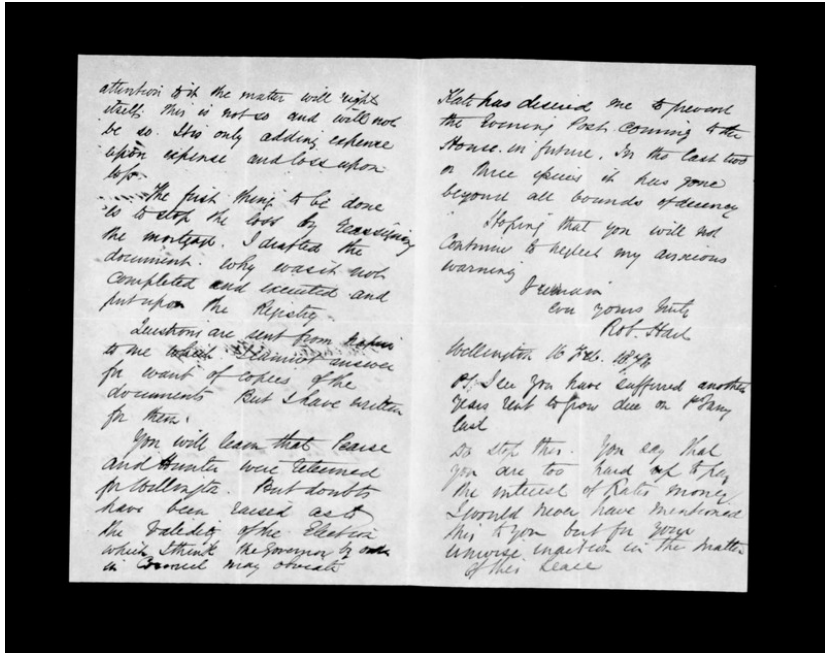 attention to it the matter will right
itself. This is not so and will not
be so. It is only adding expense
upon expense and loss upon
loss.
The first thing to be done
is to stop the loss by reassigning
the mortgage. I drafted the
document. Why was it not
completed and executed and
put upon the Registry.
Questions are sent from
to me which I cannot answer
for want of copies of the
documents But I have written
for them.
You will learn that Pearce
and Hunter were returned
for Wellington. But doubts
have been raised as to
the validity of the Election
which I think the Governor by order
in Council may obviate
Kate has desired me to prevent
the Evening Post coming to the
House in future. In the last two
or three it has gone
beyond all bounds of decency
Hoping that you will not
continue to neglect my anxious
warning
I remain
ever yours truly
Rob. Hart
Wellington 16 Feb.
PS. I see you have suffered another
years rent to grow due on 1st Jany
last
Do stop this. You say that
you are too hard up to pay
the interest of Kates money
I would never have mentioned
this to you but for your
unwise inaction in the matter
of this Lease